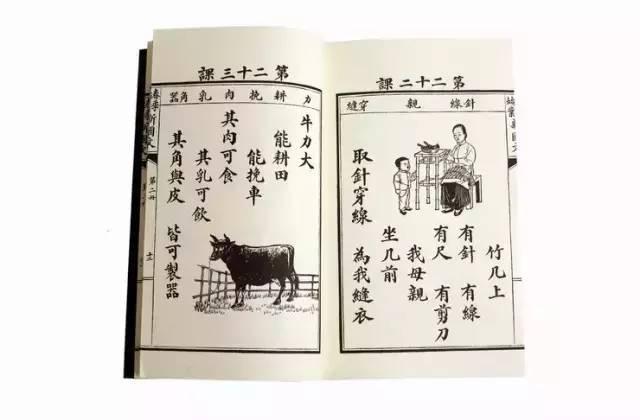 第二十二課
針線 親 穿縫
竹几上
有針 有線
有尺 有剪刀
我母親
坐几前
取針穿線 為我縫衣
第二十三課
力 耕 挽 肉 乳 角器
牛力大
能耕田
能挽車
其肉可食
其乳可飲
其角與皮 皆可製器
新國文
第二冊